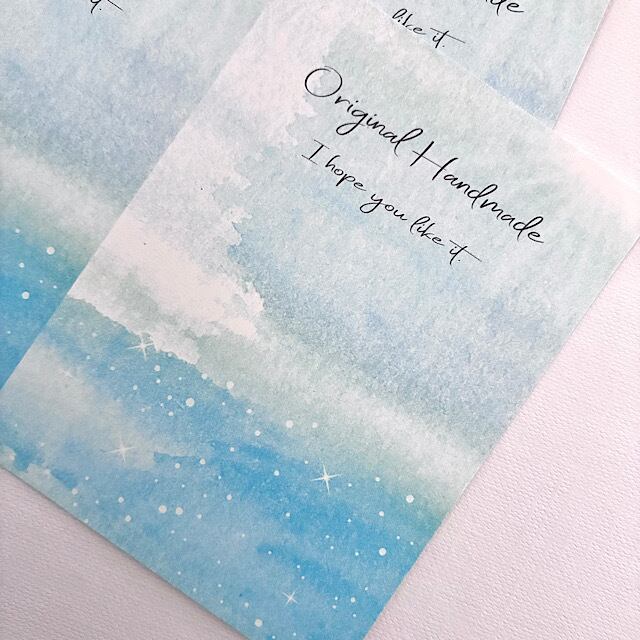 Original Handmade
I hope you like it.
like it.